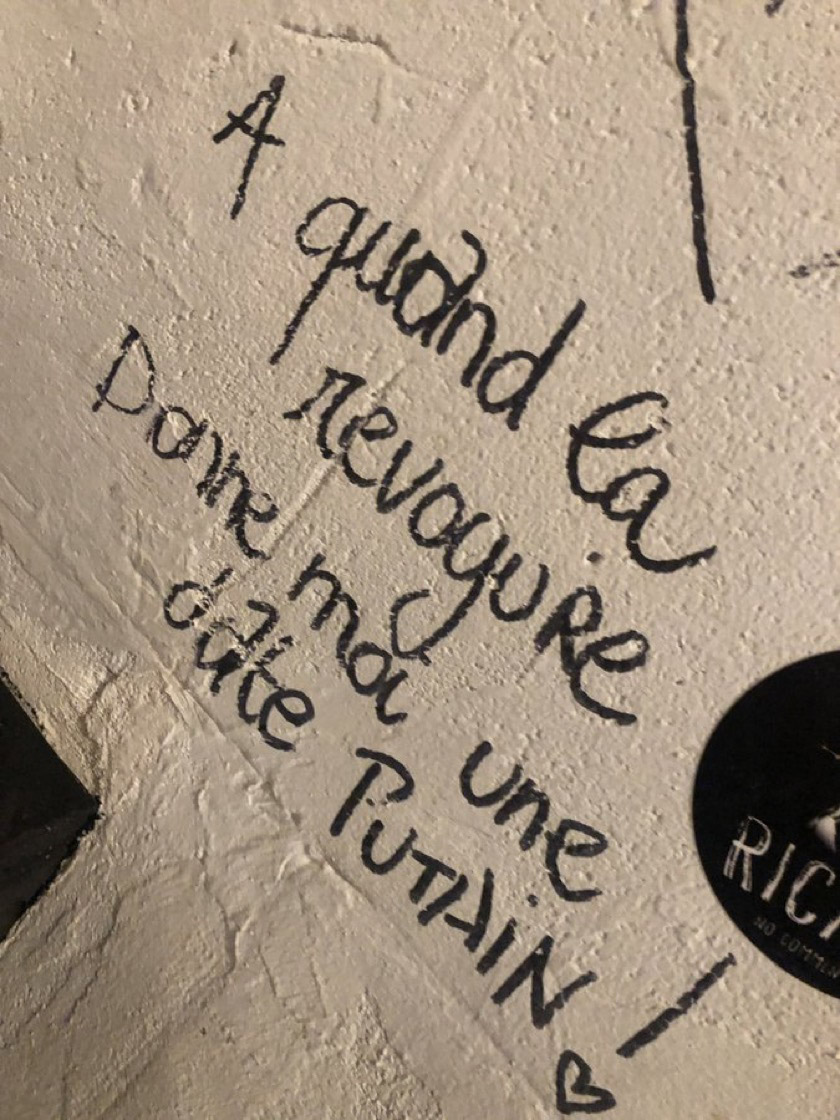 A quand la
revoyure
Donne moi une
date PUTAIN !
RIC
NO COMM